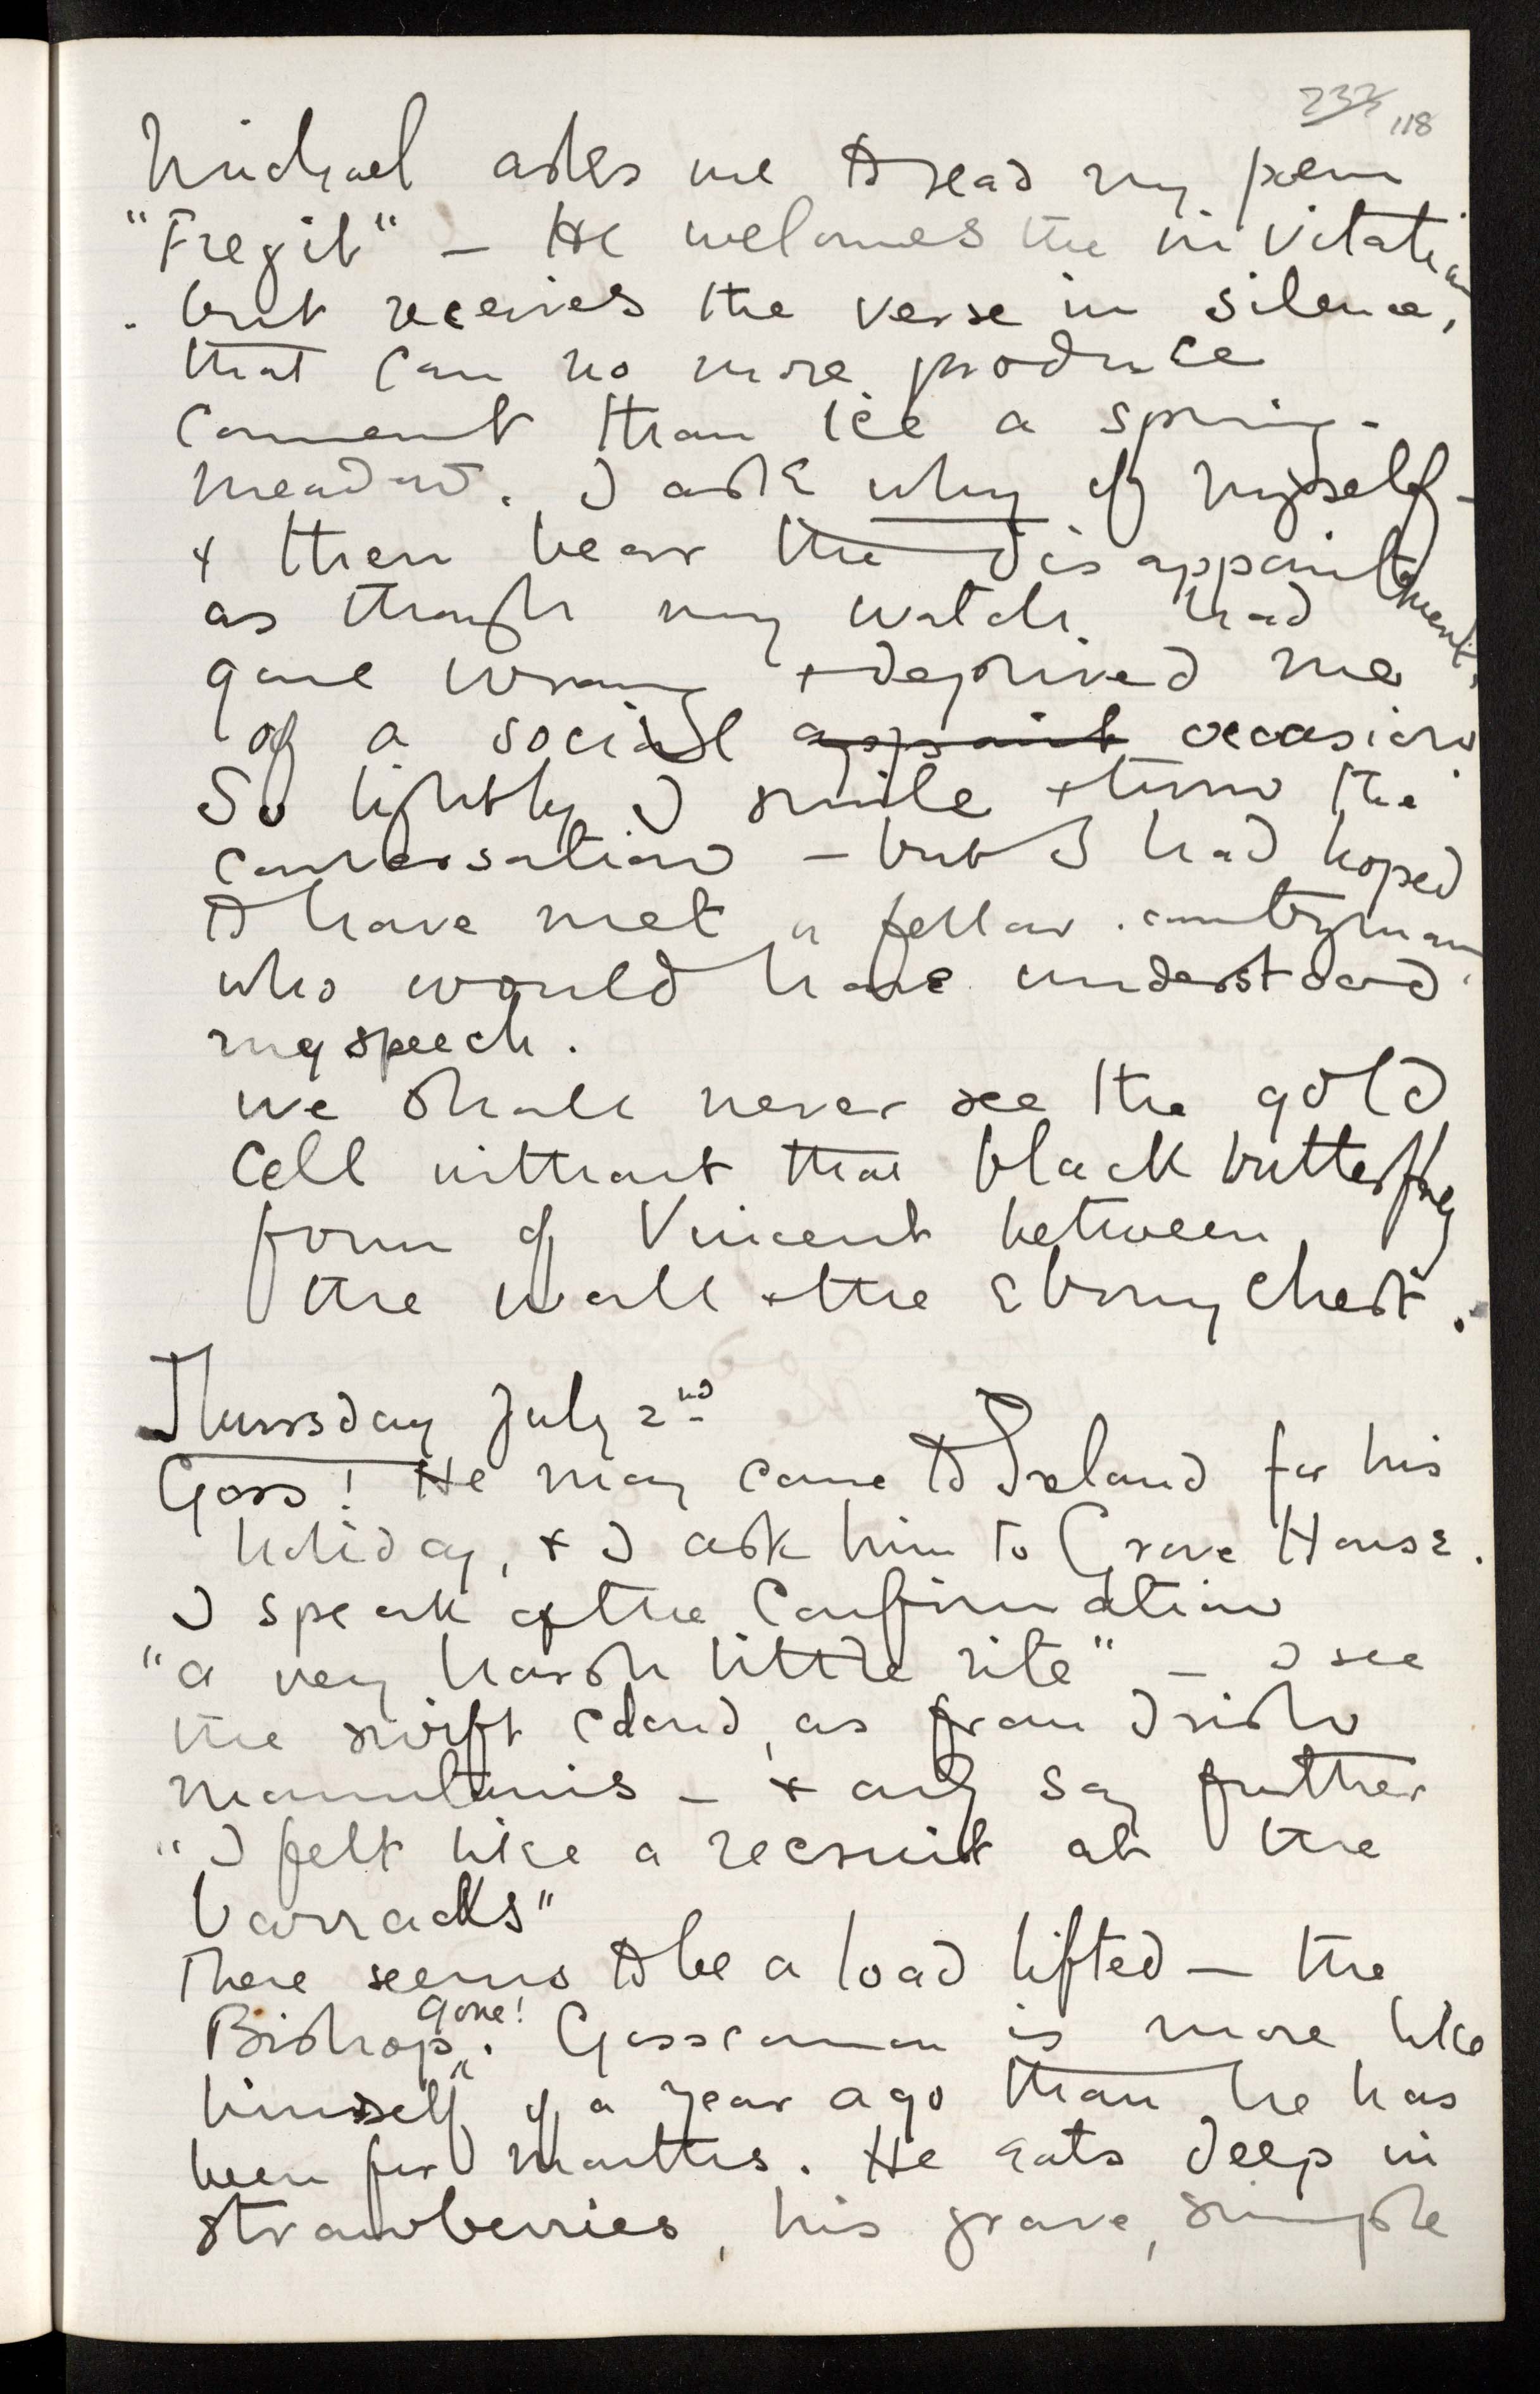 237 118
Michael asks me to read my poem
"Fregit" — He welcomes the invitation
but receives the verse in silence,
that can no more produce
comment than ice a spring-
meadow. I ask why of myself -
& then bear the disappointment,
as though my watch had
gone wrong & deprived me
of a social appoint occasion
So lightly I smile & turn the
conversation — but I had hoped
to have met a fellow-countryman
who would have understood
my speech.
we shall never see the gold
Cell without that black butterfly
form of Vincent between
the wall & the Ebony chest.
Thursday July 2nd
Goss! He may come to Ireland for his
holiday, & I ask him to Grove House.
I speak of the Confirmation
"a very harsh little rite" — I see
the swift cloud, as from Irish
mountains — & only say further
"I felt like a recruit at the
barracks"
There seems to be a load lifted — the
Bishop gone! Gosscannon is more like
himself of a year ago than he has
been for months. He eats deep in
strawberries, his grave, simple